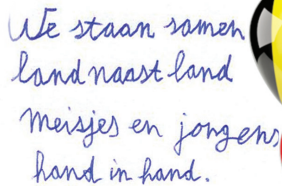 We staan samen
land naast land
meisjes en jongens
hand in hand.